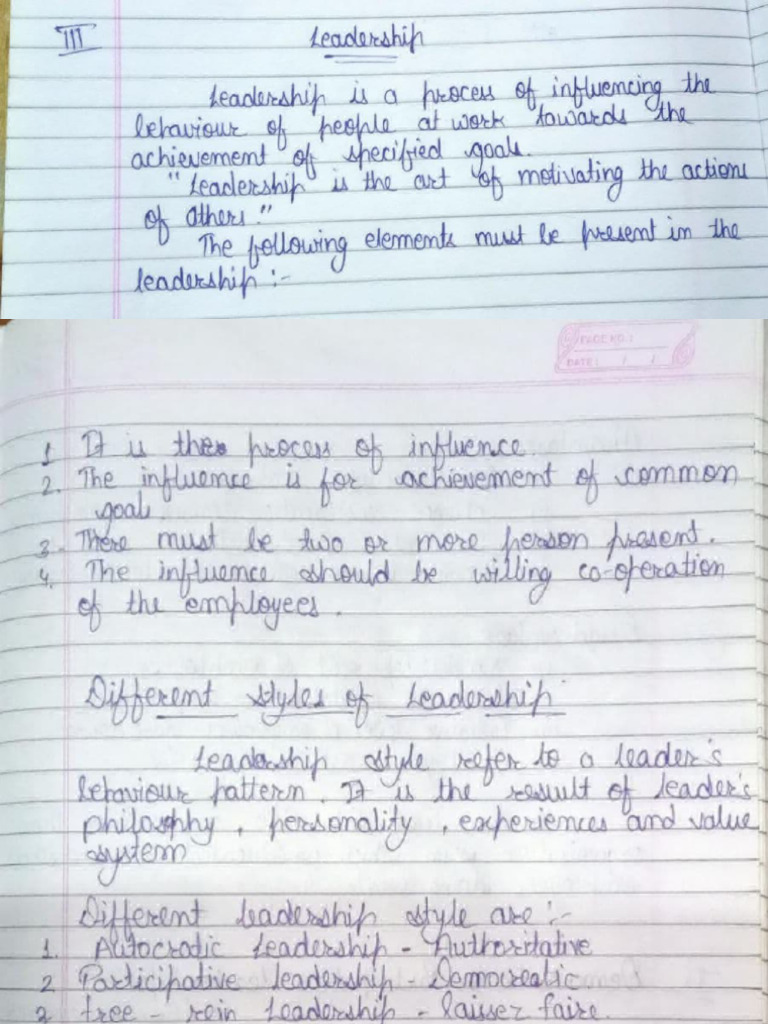 III Leadership
Leadership is a process of influencing the
behaviour of people at work towards the
achievement of specified goals.
"Leadership is the art of motivating the actions
of others"
The following elements must be present in the
leadership :-
PAGE NO.:
DATE: / /
1 It is the process of influence.
2. The influence is for achievement of common
goals
3. There must be two or more person present.
4. The influence should be willing co-operation
of the employees.
Different styles of Leadership
Leadership style refer to a leader's
behaviour pattern. It is the result of leader's
philosphy, personality, experiences and value
system
Different leadership style are :-
1. Autocratic Leadership - Authoritative
2 Participative leadership - Democratic
3 free - rein Leadership - laisser faire.